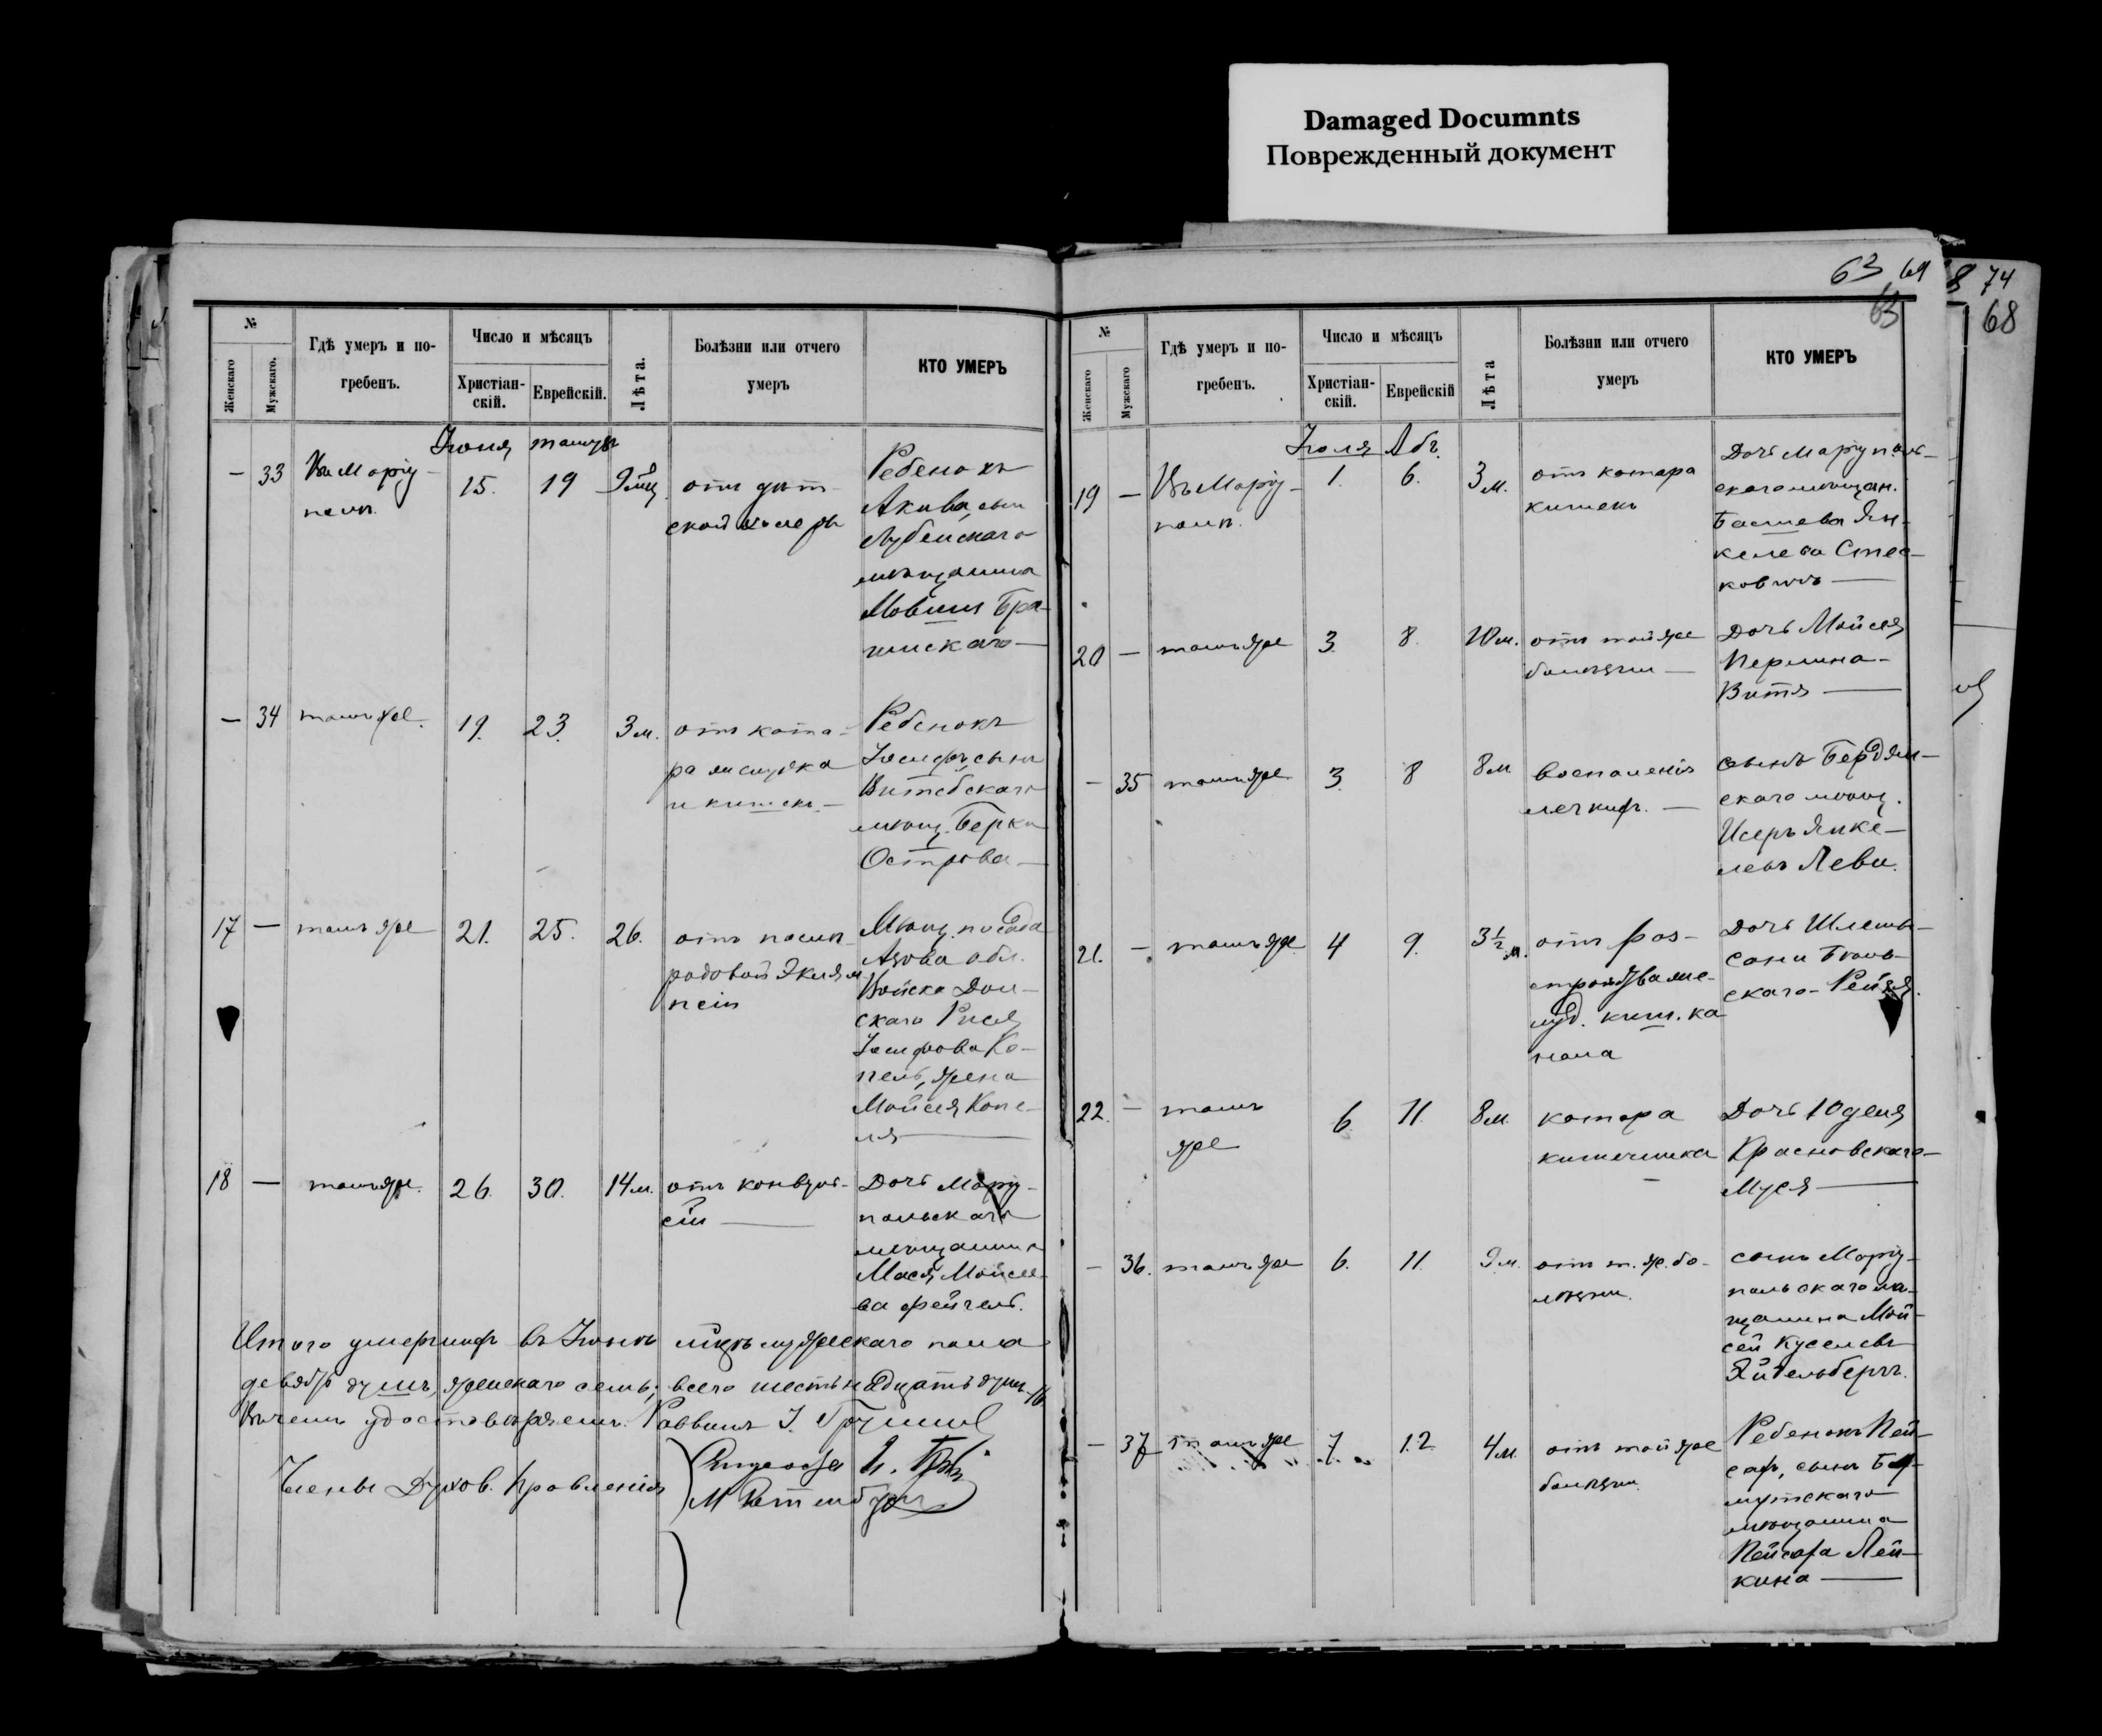 Damaged Documnts
Поврежденный документ
63 69 74
63 68
№
Женскаго
Мужскаго.
Гдѣ умеръ и по-
гребенъ.
Число и мѣсяцъ
Христіан-
скій.
Еврейскій.
Лѣта.
Болѣзни или отчего
умеръ
КТО УМЕРЪ
Іюня
— 33 Въ Маріу-
15. 19
отъ дѣт-
ской холеры
Ребенокъ
Акива, сынъ
Лубенскаго
мѣщанина
Мовши
— 34 тамъ же. 19. 23. 3 м.
отъ ката-
ра желудка
и кишекъ —
Ребенокъ
Іосифъ, сынъ
Витебскаго
мѣщ. Берка
Острова —
17 — тамъ же 21. 25. 26.
отъ послѣ-
родовой Эклам
псіи
Мѣщ. посада
Азова обл.
Войска Дон-
скаго Рися
Іосифова Ко-
пель, жена
Мойсея Копе-
ля —
18 — тамъ же. 26. 30. 14 м.
отъ конвуль-
сіи —
Дочь Маріу-
польскаго
мѣщанина
Мася Мойсее-
ва Фейгель.
Итого умершихъ въ Іюнѣ мцѣ мужескаго пола
девять душъ, женскаго семь, всего шестьнадцать душъ 16
Въ чемъ удостовѣряемъ. Раввинъ І.
Члены Духов. Правленія
№
Женскаго
Мужскаго
Гдѣ умеръ и по-
гребенъ.
Число и мѣсяцъ
Христіан-
скій.
Еврейскій
Лѣта
Болѣзни или отчего
умеръ
КТО УМЕРЪ
Іюля Абъ.
19 — Въ Маріу-
полѣ.
1. 6. 3 м.
отъ катара
кишекъ
Дочь Маріуполь-
скаго мѣщан.
Башева Ян-
келева
20 — тамъ же 3. 8. 10 м.
отъ той же
болѣзни —
Дочь Мойсея
Перлина-
Витя —
— 35 тамъ же 3. 8 8 м
воспаленія
легкихъ. —
сынъ Бердян-
скаго мѣщ.
Исеръ Янке-
левъ Леви.
21. — тамъ же 4 9. 3½ м.
отъ раз-
стройства же-
луд. киш. ка
нала
Дочь
скаго - Рейзя.
22. — тамъ
же
6. 11. 8 м.
катара
кишечника
Дочь Юделя
Красновскаго-
Муся —
— 36. тамъ же 6. 11. 9 м.
отъ т. ж. бо-
лѣзни.
сынъ Маріу-
польскаго мѣ-
щанина Мой-
сей Куселевъ
Эйдельбергъ.
— 37 тамъ же 7. 12. 4 м.
отъ той же
болѣзни.
Ребенокъ Пей-
сахъ, сынъ Бах-
мутскаго
мѣщанина
Пейсаха Лей-
кина —